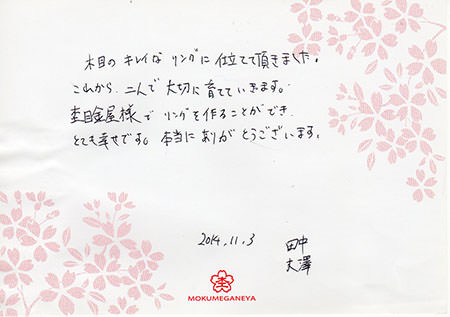 木目の キレイな リングに 仕立てて頂きました。
これから、二人で 大切に 育てていきます。
杢目金屋様で リングを作ることができ、
とても幸せです。本当に ありがとうございます。
2014.11.3
田中
大澤
杢
MOKUMEGANEYA